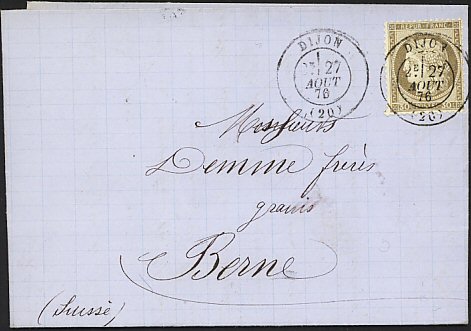 DIJON
27
AOUT
76
(20)
REPUB. FRANC.
DIJON
27
AOUT
76
(20)
30
30
Messieurs
Demme frères
grains
Berne
(Suisse)